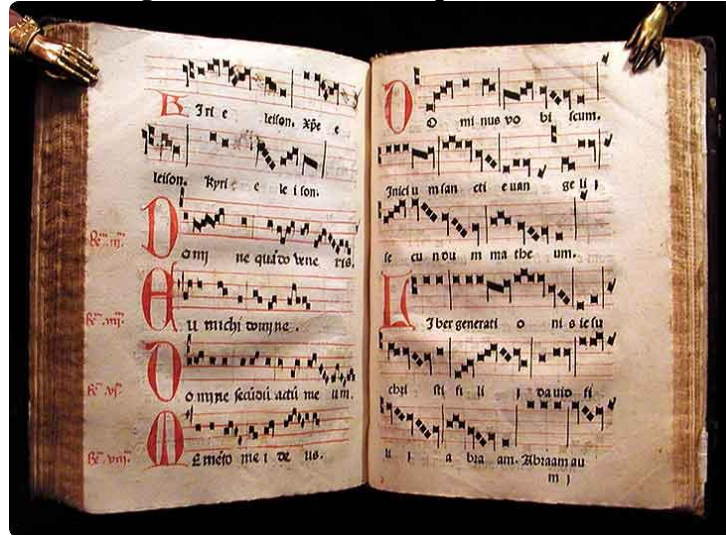 KIri e leison. Xpe e
leison. Kyri e e le i son.
Domi ne quãdo vene ris.
Eu michi domine.
Domine secũdũ actũ me um.
MEmẽto me i de us.
DO mi nus vo bi scum.
Iniciu m san cti e uan ge li j
se cu ndu m ma the um.
LIber generati o ni s ie su
chri sti fi li j da uid fi
li j a bra am. Abraam au